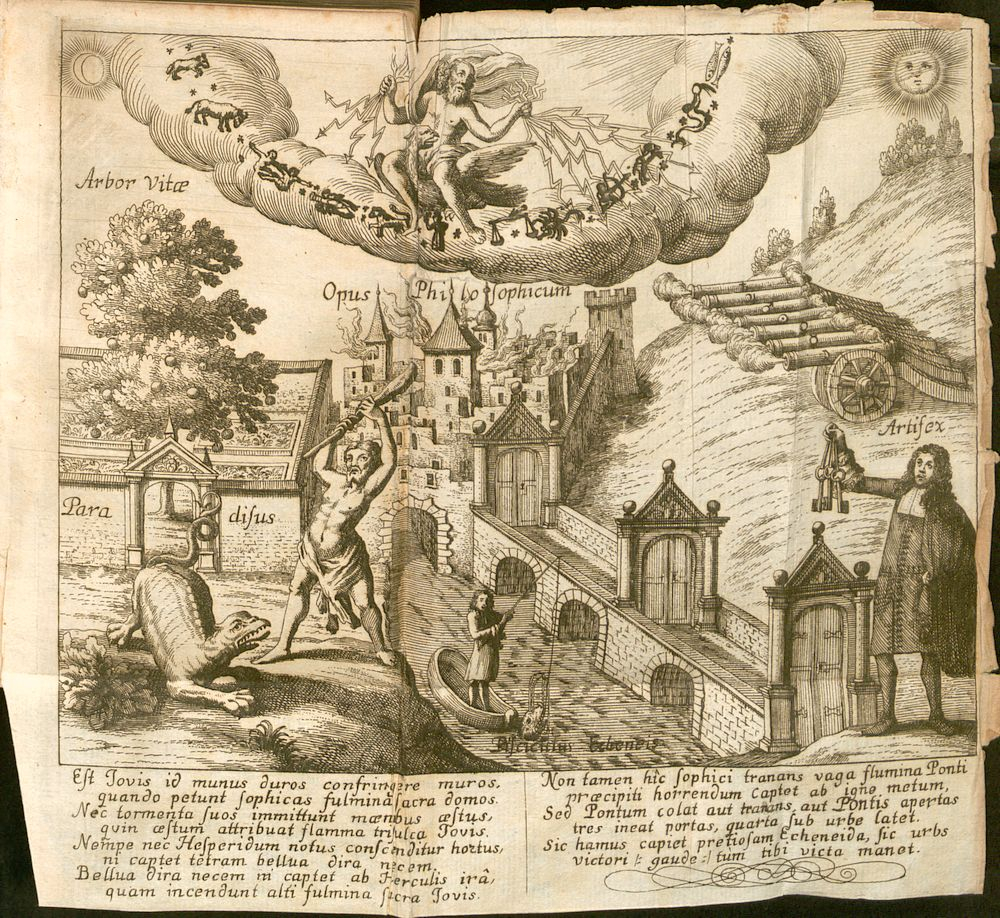 Arbor Vitæ
Opus Philosophicum
Artifex
Para disus
Pisciculus Echeneis
Est Jovis id munus duros confringere muros,
quando petunt sophicas fulmina sacra domos.
Nec tormenta suos immittunt mænibus æstus,
quin æstum attribuat flamma trisulca Jovis.
Nempe nec Hesperidum notus conscenditur hortus,
ni captet tetram bellua dira necem.
Bellua dira necem ni captet ab Herculis irâ,
quam incendunt alti fulmina sacra Jovis.
Non tamen hîc sophici tranans vaga flumina Ponti
præcipiti horrendum captet ab igne metum,
Sed Pontum colat aut tranans, aut Pontis apertas
tres ineat portas, quarta sub urbe latet.
Sic hamus capiet pretiosam Echeneida, sic urbs
victori |: gaude :| tum tibi victa manet.